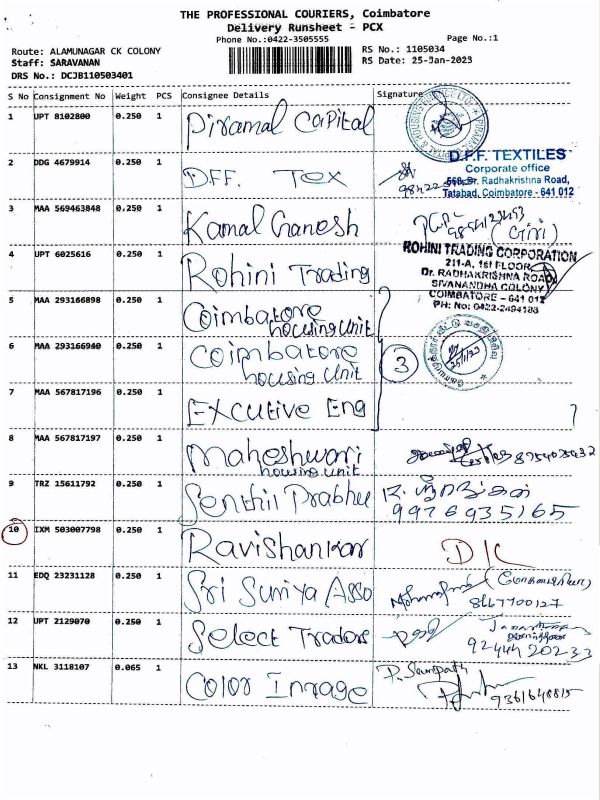 THE PROFESSIONAL COURIERS, Coimbatore
Delivery Runsheet - PCX
Phone No.:0422-3505555
Page No.:1
Route: ALAMUNAGAR CK COLONY
RS No.: 1105034
Staff: SARAVANAN
RS Date: 25-Jan-2023
DRS No.: DCJB110503401
S No Consignment No Weight PCS Consignee Details Signature
1 UPT 8102800 0.250 1 Piramal Capital
2 DDG 4679914 0.250 1 D.F.F. Tex
D.F.F. TEXTILES
Corporate office
568, Dr. Radhakrishna Road,
Tatabad, Coimbatore - 641 012
3 MAA 569463848 0.250 1 Kamal Ganesh
(Giri)
4 UPT 6025616 0.250 1 Rohini Trading
ROHINI TRADING CORPORATION
211-A, 1st FLOOR
Dr. RADHAKRISHNA ROAD,
SIVANANDHA COLONY
COIMBATORE - 641 012
PH: No: 0422-2494183
5 MAA 293166898 0.250 1 Coimbatore
housing unit
6 MAA 293166940 0.250 1 Coimbatore
housing unit
3
25/1/23
7 MAA 567817196 0.250 1 Excutive Eng
8 MAA 567817197 0.250 1 Maheshwari
housing unit
9 TRZ 15611792 0.250 1 Senthil Prabhu
9976935165
10 IXM 503007798 0.250 1 Ravishankar DK
11 EDQ 23231128 0.250 1 Sri Suriya Asso
8667700127
12 UPT 2129070 0.250 1 Select Traders
9244420233
13 NKL 3118107 0.065 1 Color Image
P. Sampath
9361648815